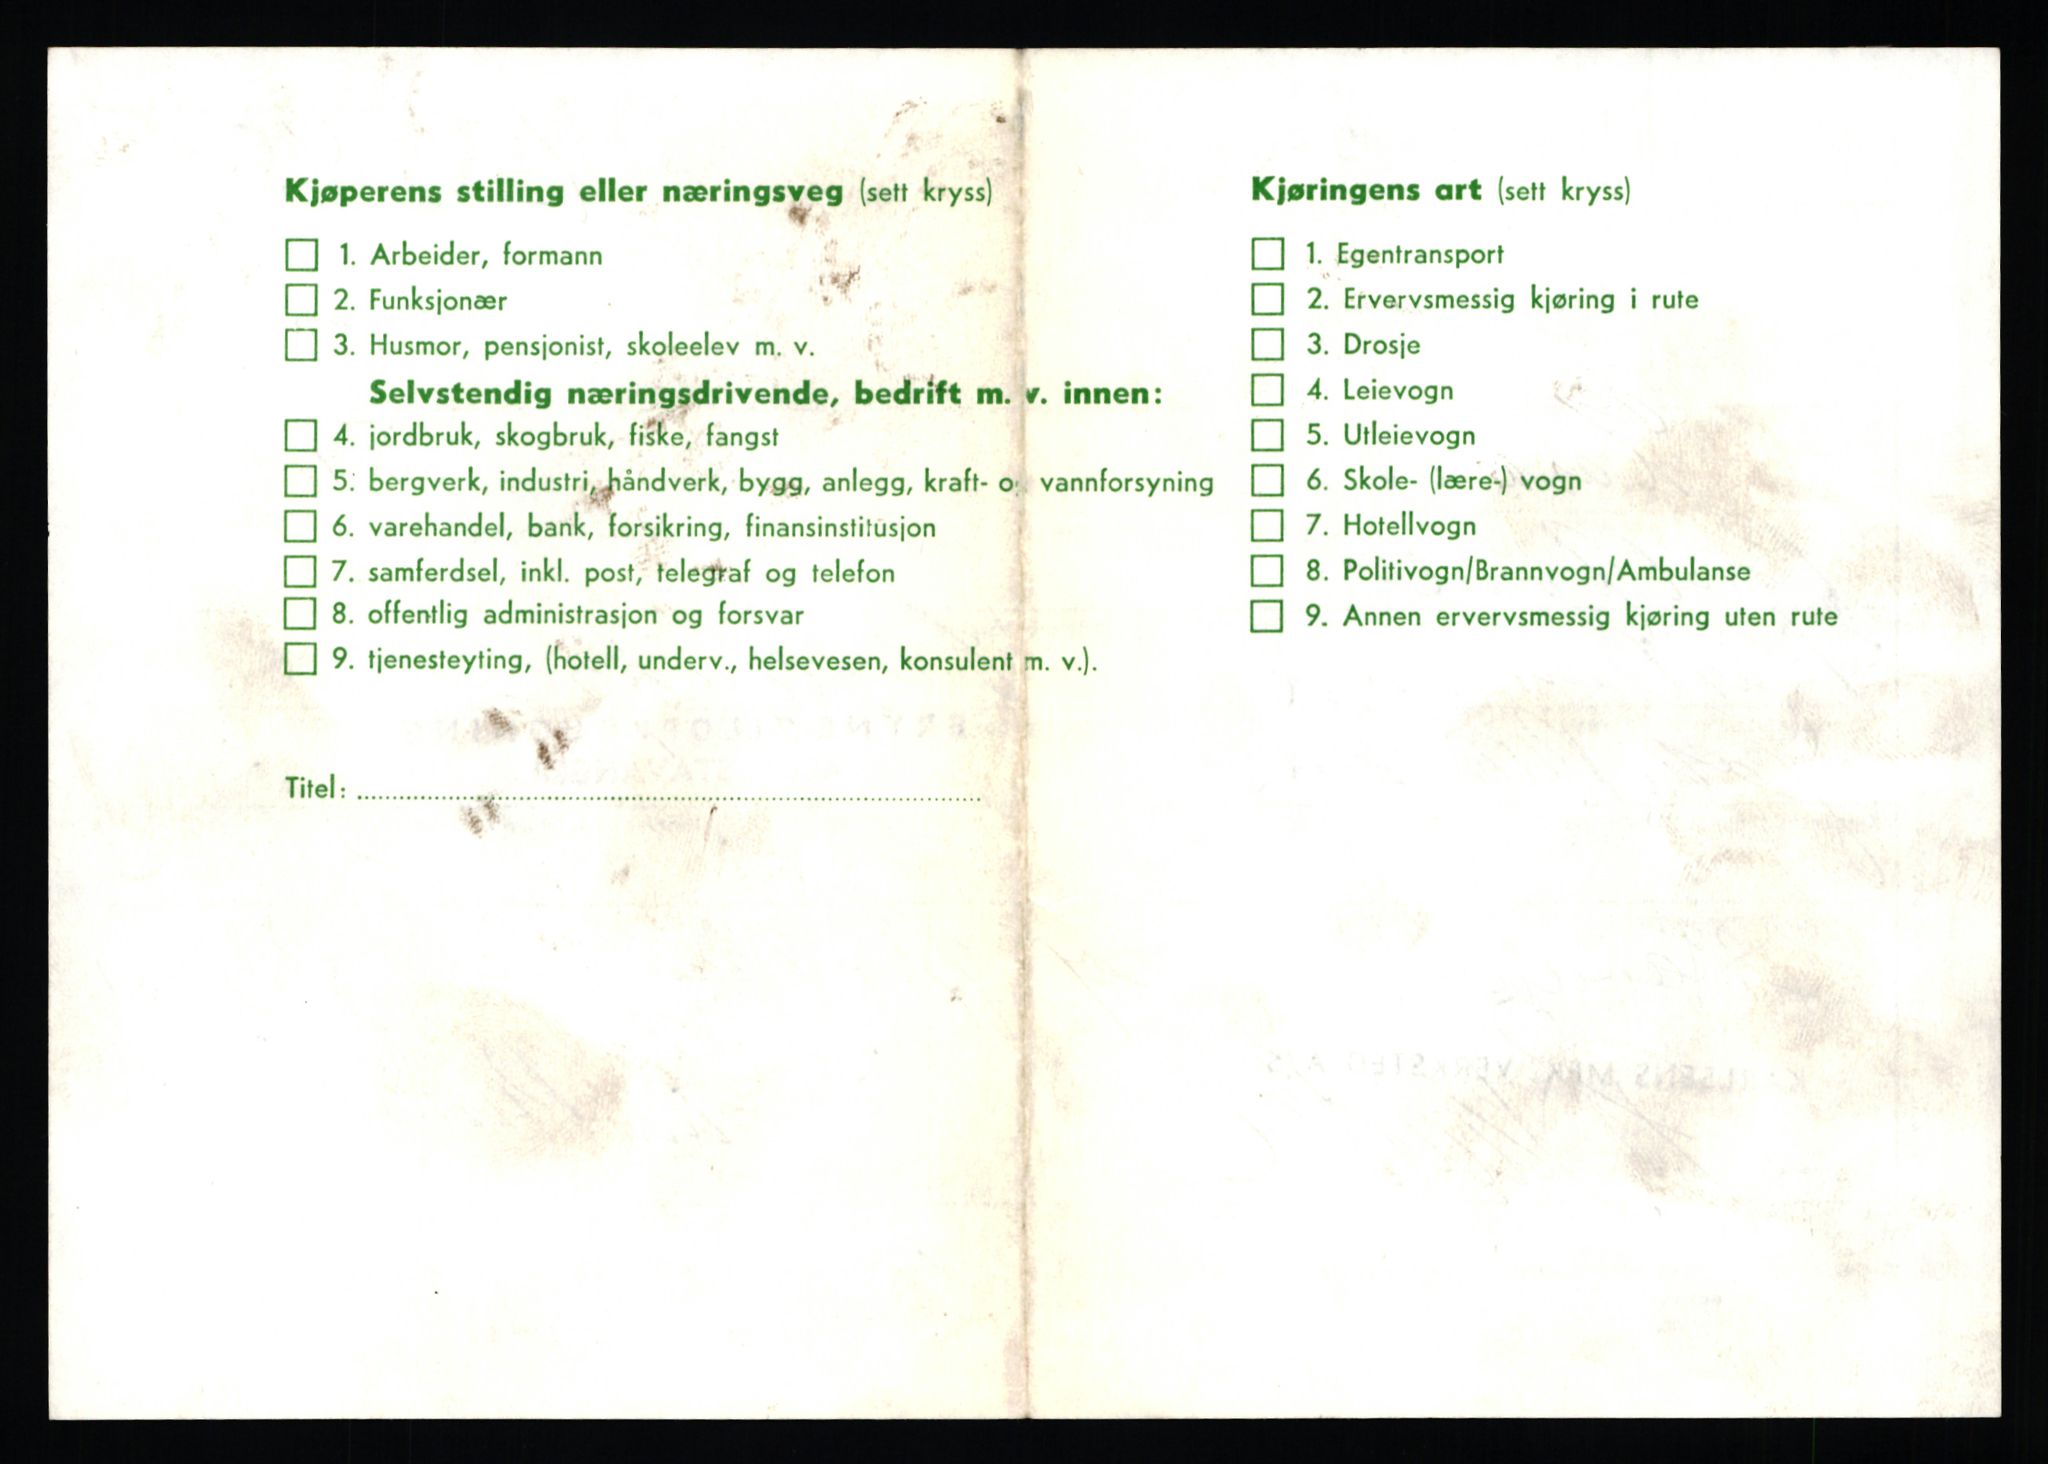 Kjøperens stilling eller næringsveg (sett kryss)
1. Arbeider, formann
2. Funksjonær
3. Husmor, pensjonist, skoleelev m. v.
Selvstendig næringsdrivende, bedrift m. v. innen:
4. jordbruk, skogbruk, fiske, fangst
5. bergverk, industri, håndverk, bygg, anlegg, kraft- og vannforsyning
6. varehandel, bank, forsikring, finansinstitusjon
7. samferdsel, inkl. post, telegraf og telefon
8. offentlig administrasjon og forsvar
9. tjenesteyting, (hotell, underv., helsevesen, konsulent m. v.).
Titel:
Kjøringens art (sett kryss)
1. Egentransport
2. Ervervsmessig kjøring i rute
3. Drosje
4. Leievogn
5. Utleievogn
6. Skole- (lære-) vogn
7. Hotellvogn
8. Politivogn/Brannvogn/Ambulanse
9. Annen ervervsmessig kjøring uten rute